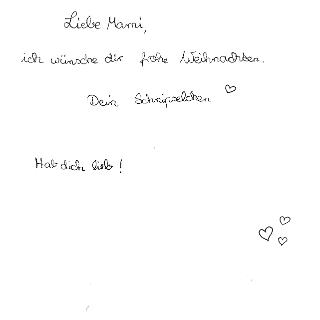 Liebe Mami,
ich wünsche dir frohe Weihnachten.
Dein Schnipselchen
Hab dich lieb!